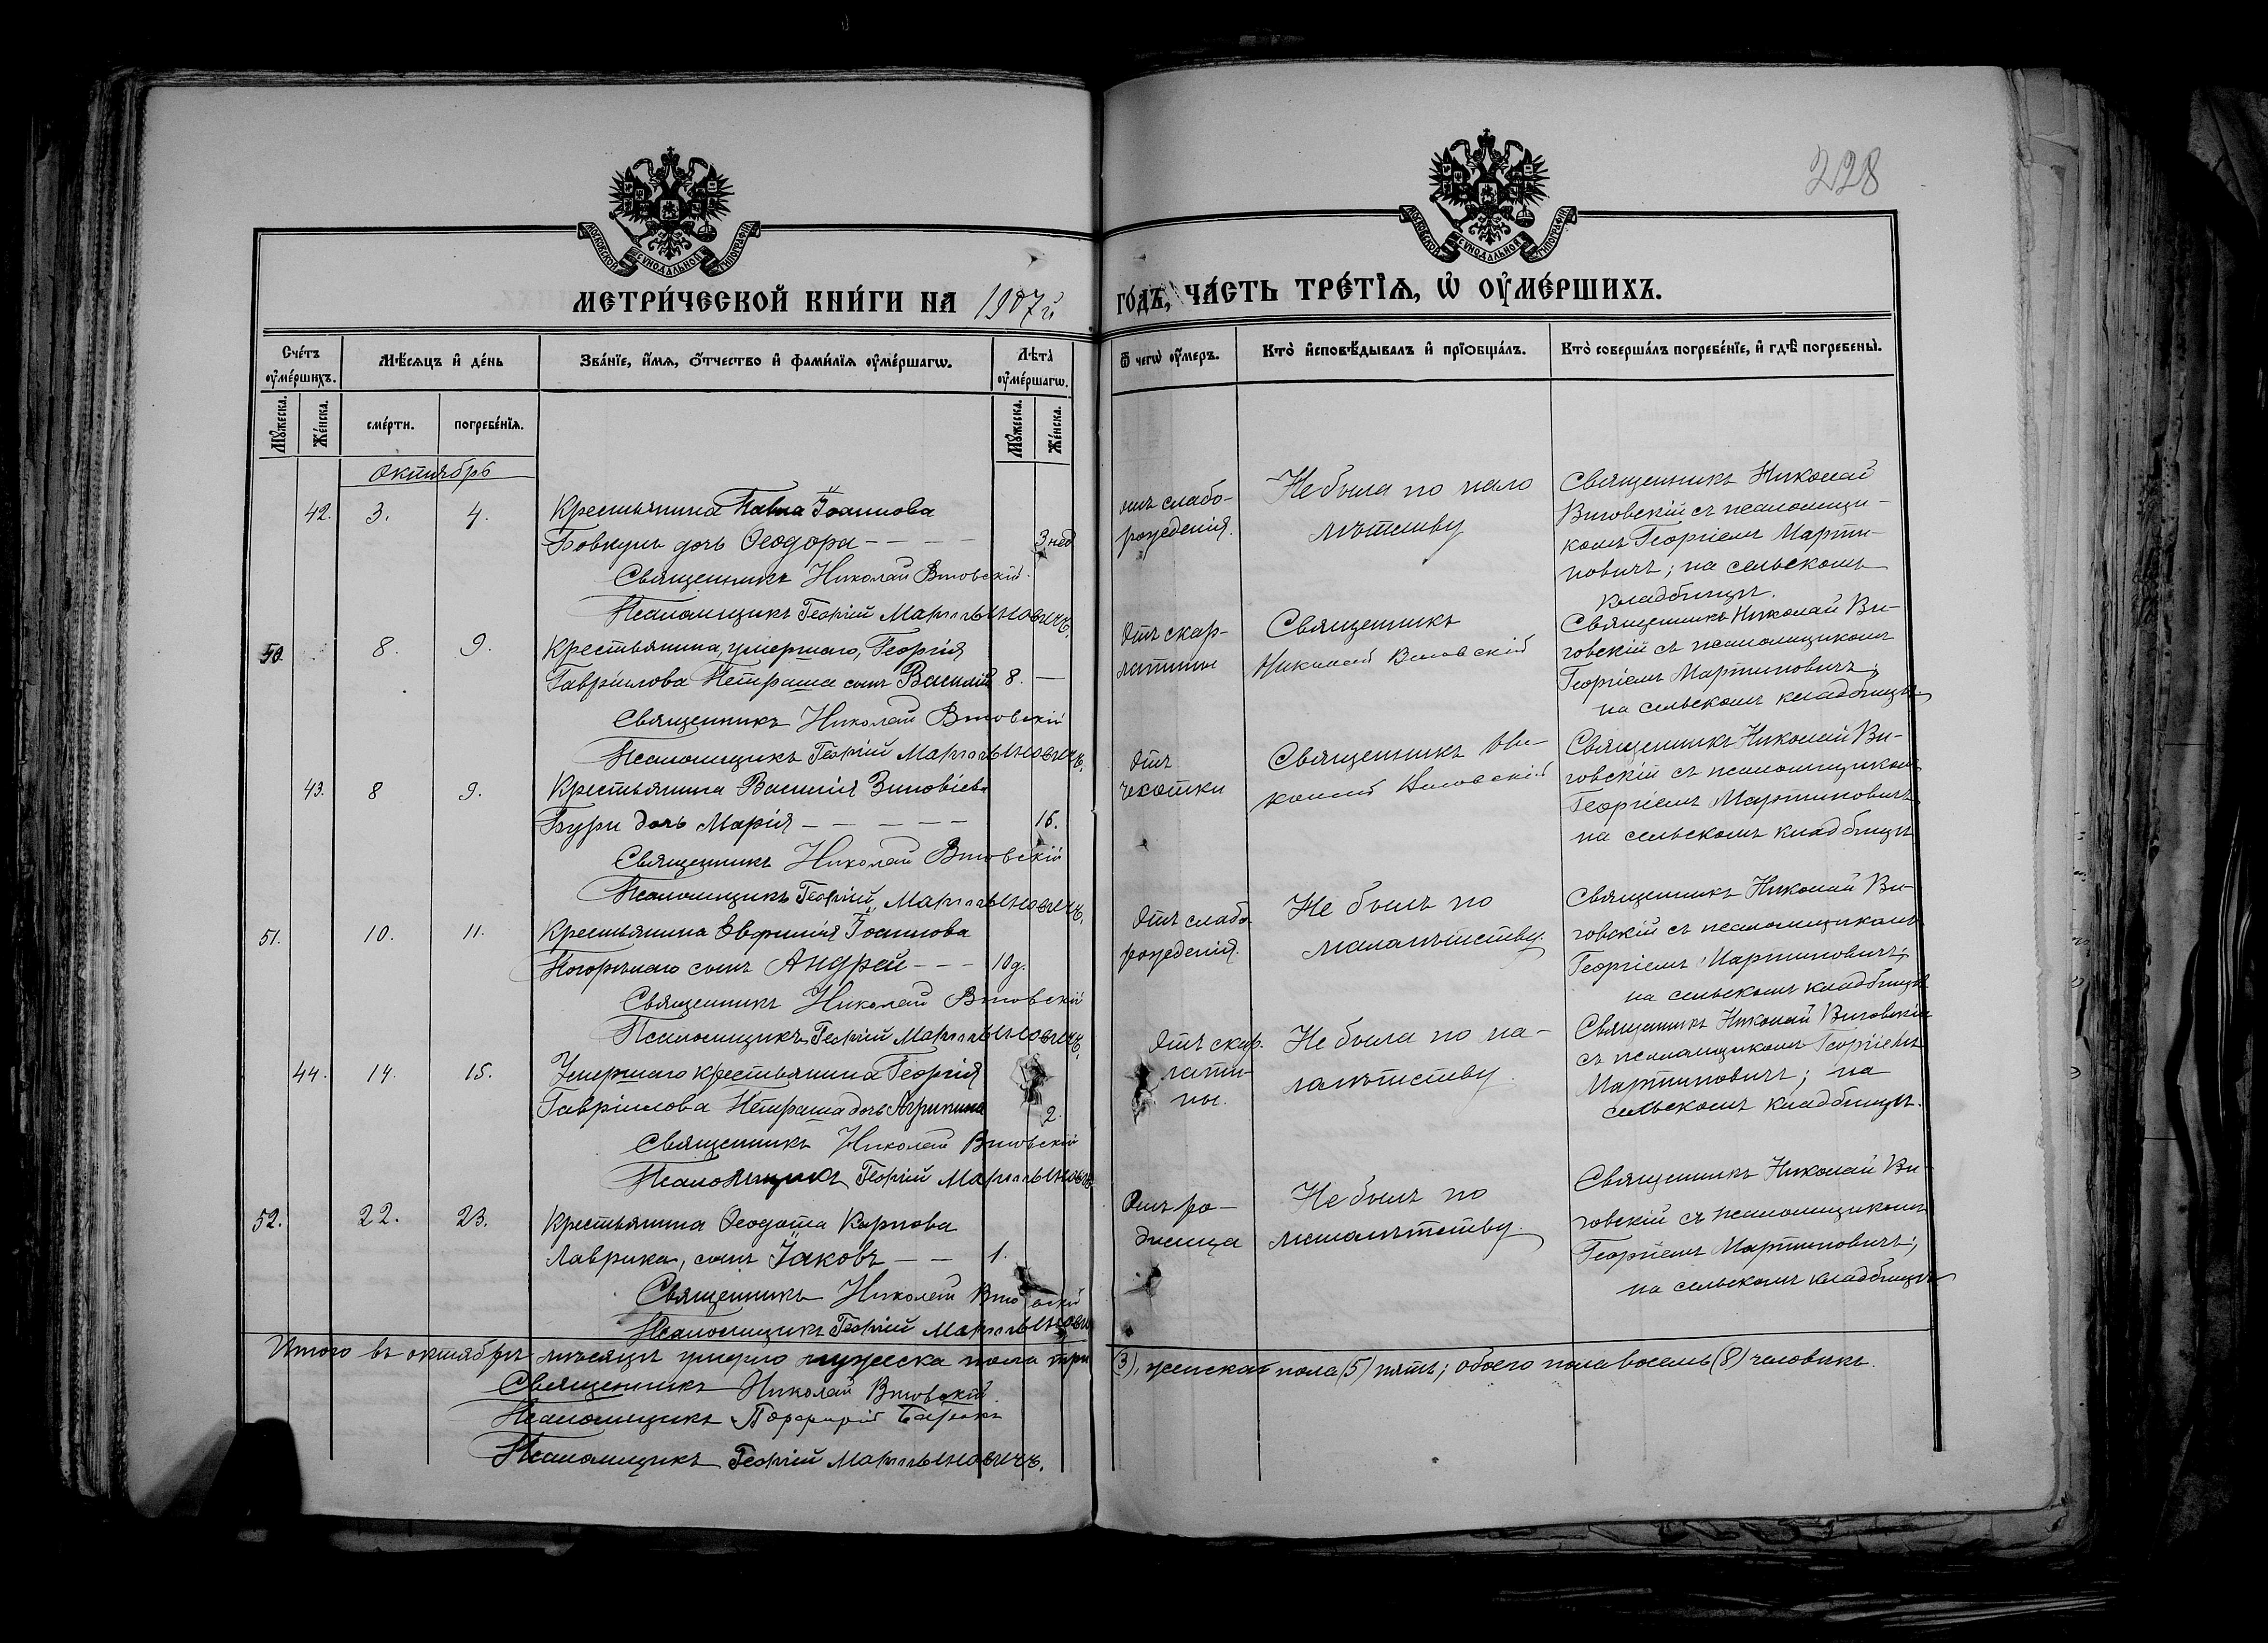 228
МОСКОВСКОЙ СѴНОДАЛЬНОЙ ТИПОГРАФІИ
МОСКОВСКОЙ СѴНОДАЛЬНОЙ ТИПОГРАФІИ
МЕТРИ́ЧЕСКОЙ КНИ́ГИ НА 1907й ГО́ДЪ, ЧА́СТЬ ТРЕ́ТІѦ, Ѡ҆ ОУ҆МЕ́РШИХЪ.
Сче́тъ оу҆ме́ршихъ.
Мѣ́сѧцъ и҆ де́нь
Зва́нїе, и҆́мѧ, ѻ҆́тчество и҆ фами́лїѧ оу҆ме́ршагѡ.
Лѣта̀ оу҆ме́ршагѡ.
Ѿ чегѡ̀ оу҆́меръ.
Кто̀ и҆сповѣ́дывалъ и҆ прїѡбща́лъ.
Кто̀ соверша́лъ погребе́нїе, и҆ гдѣ̀ погребены̀.
Мꙋ́жеска.
Же́нска.
сме́рти.
погребе́нїѧ.
Мꙋ́жеска.
Же́нска.
Октябрь
42. 3. 4. Крестьянина Павла Іоаннова
Бовкунъ дочь Ѳеодора – – – – 3 нед
Священникъ Николай Виговскій.
Псаломщикъ Георгій Мартыновичъ.
отъ слабо-
рожденія.
Не была по мало
лѣтству
Священникъ Николай
Виговскій съ псаломщи-
комъ Георгіемъ Марти-
новичъ; на сельскомъ
кладбищѣ.
50. 8. 9. Крестьянина, умершаго, Георгія
Гавріилова Петраша сынъ Василій 8. –
Священникъ Николай Виговскій
Псаломщикъ Георгій Мартыновичъ.
Отъ скар-
латины
Священникъ
Николай Виговскій
Священникъ Николай Ви-
говскій съ псаломщикомъ
Георгіемъ Мартиновичъ;
на сельскомъ кладбищѣ
43. 8 9. Крестьянина Василія Зиновіева
Бури дочь Марія – – – – – 16.
Священникъ Николай Виговскій
Псаломщикъ Георгій Мартыновичъ.
Отъ
чехотки
Священникъ Ни-
колай Виговскій
Священникъ Николай Ви-
говскій съ псаломщикомъ
Георгіемъ Мартиновичъ
на сельскомъ кладбищѣ
51. 10. 11. Крестьянина Евфимія Іоаннова
Погорѣлаго сынъ Андрей – – – 10 д.
Священникъ Николай Виговскій
Псаломщикъ Георгій Мартыновичъ.
Отъ слабо
рожденія.
Не былъ по
малолѣтству.
Священникъ Николай Ви-
говскій съ псаломщикомъ
Георгіемъ Мартиновичъ;
на сельскомъ кладбищѣ
44. 14. 15. Умершаго крестьянина Георгія
Гавріилова Петраша дочь Агрипина 2.
Священникъ Николай Виговскій
Псаломщикъ Георгій Мартыновичъ
Отъ скар.
лати-
ны.
Не была по ма-
лолѣтству.
Священникъ Николай Виговскій
съ псаломщикомъ Георгіемъ
Мартиновичъ; на
сельскомъ кладбищѣ.
52. 22. 23. Крестьянина Ѳеодота Карпова
Лаврика, сынъ Іаковъ – – 1.
Священникъ Николай Виговскій
Псаломщикъ Георгій Мартынович
Отъ ро-
димца
Не былъ по
малолѣтству.
Священникъ Николай Ви-
говскій съ псаломщикомъ
Георгіемъ Мартиновичъ;
на сельскомъ кладбищѣ
Итого въ октябрѣ мѣсяцѣ умерло мужеска пола три (3), женска пола (5) пять; обоего пола восемь (8) человѣкъ.
Священникъ Николай Виговскій.
Псаломщикъ Порфирій
Псаломщикъ Георгій Мартыновичъ.